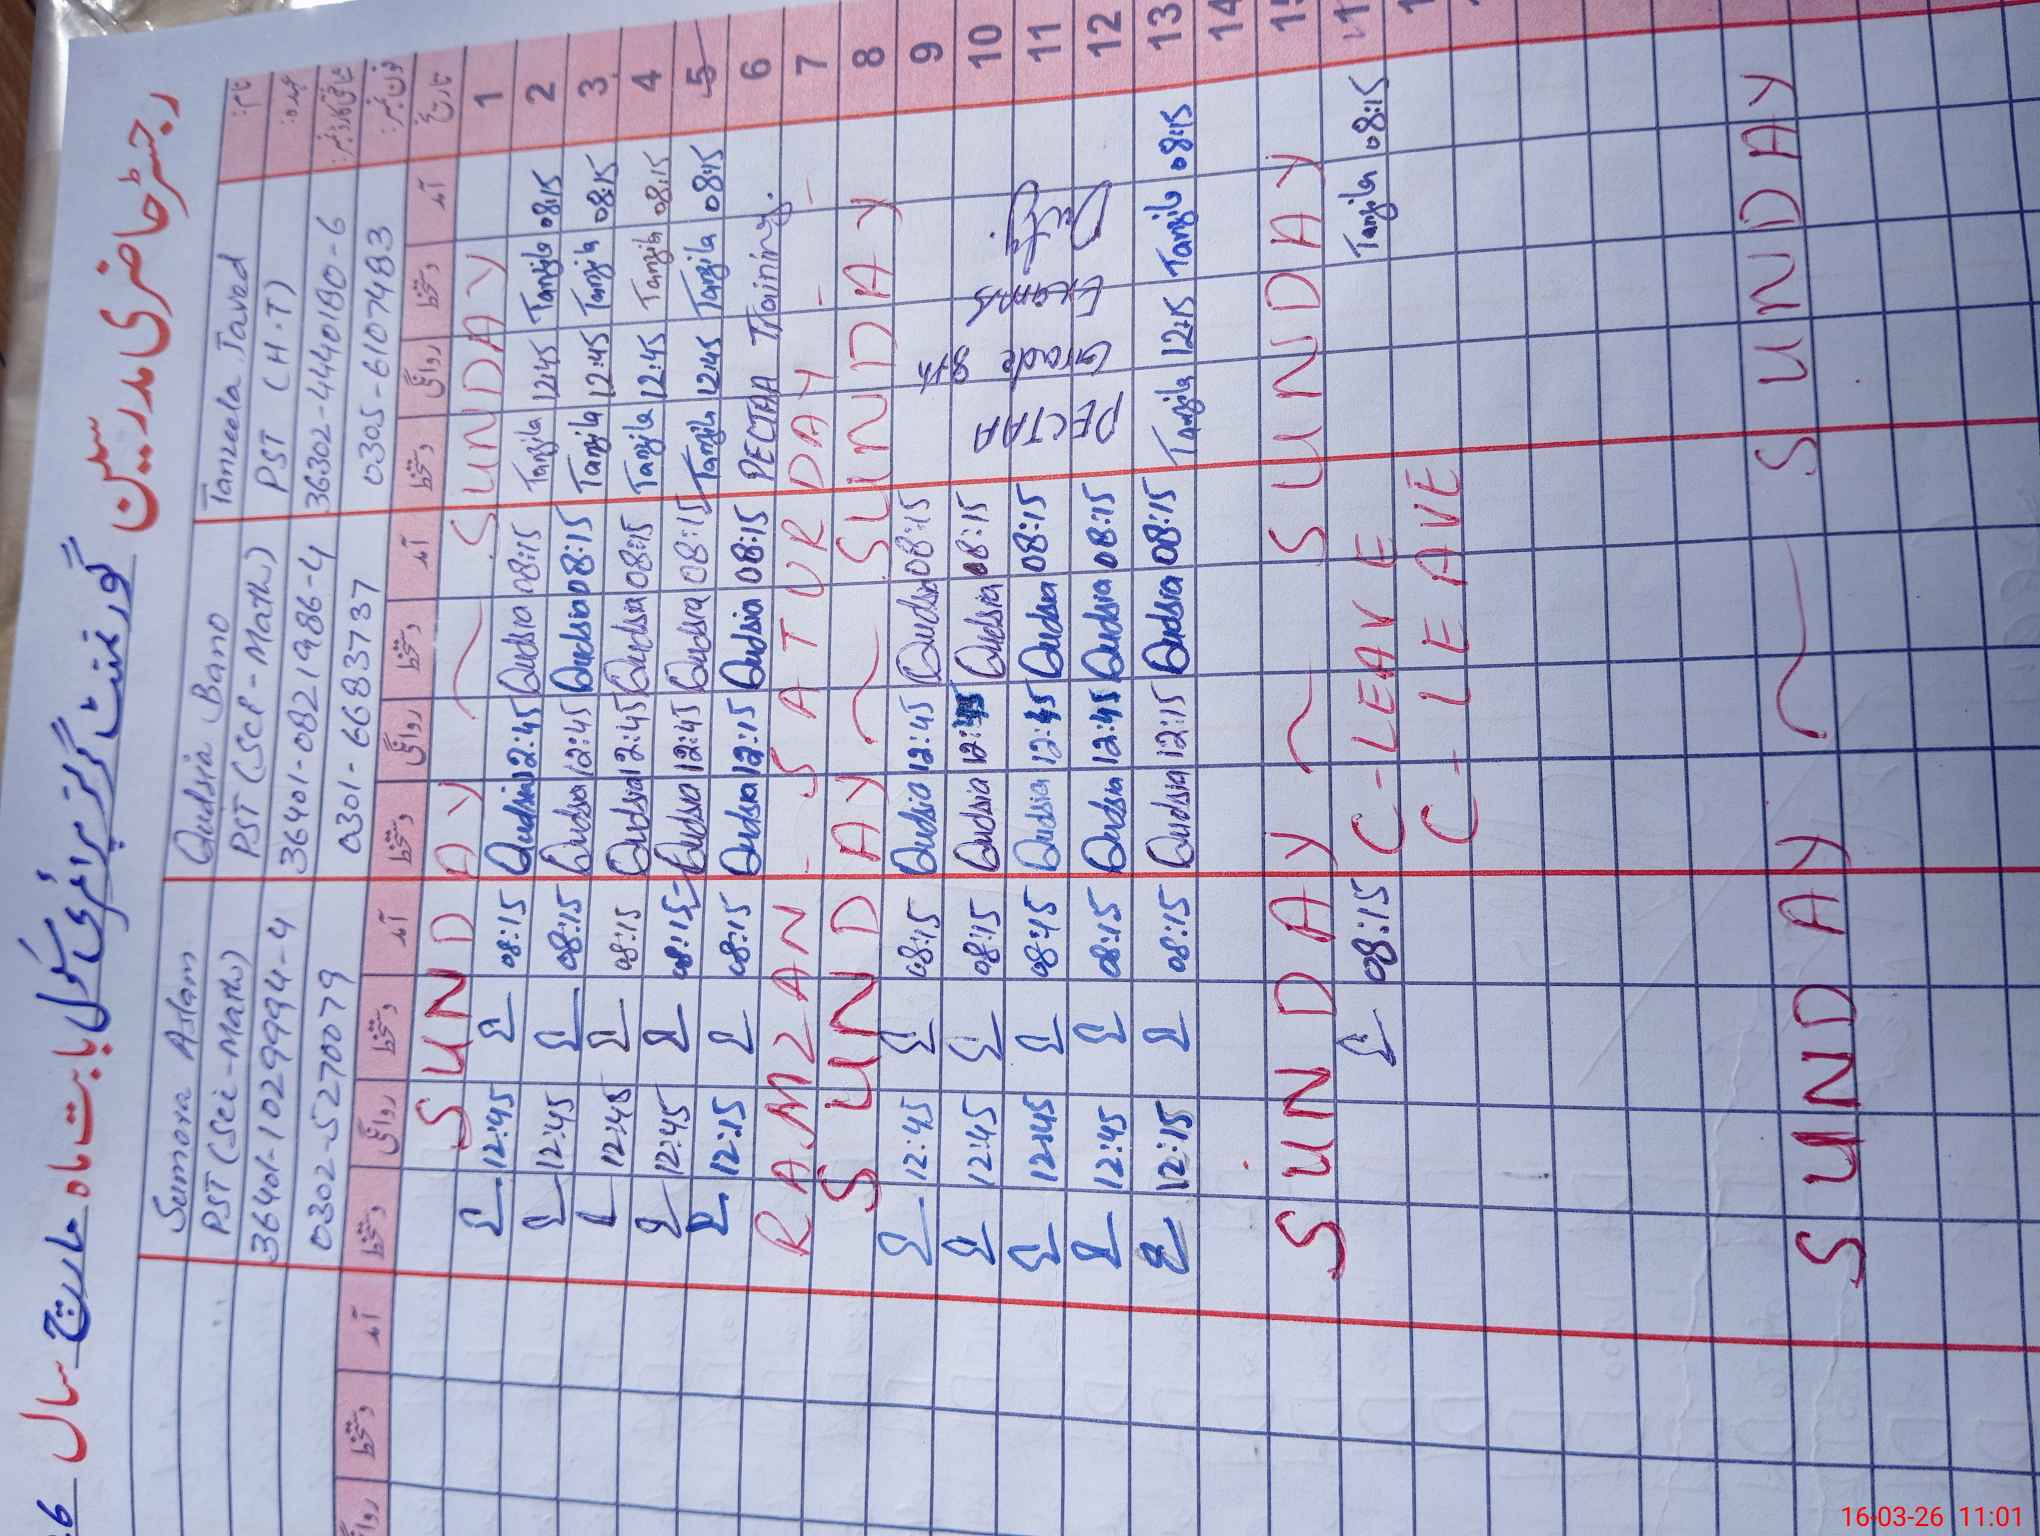 رجسٹر حاضری مدرسین گورنمنٹ گرلز پرائمری سکول بابت ماہ مارچ سال
نام: Tanzeela Javed Qudsia Bano Sumera Aslam
عہدہ: PST (H.T) PST (Sci-Math) PST (Sci-Maths)
شناختی کارڈ نمبر: 36302-4440180-6 36401-0821986-4 36401-1029994-4
فون نمبر: 0305-6107483 0301-6683737 0302-5270079
تاریخ آمد دستخط روانگی دستخط آمد دستخط روانگی دستخط آمد دستخط روانگی دستخط آمد دستخط روانگی
1 SUNDAY ~ SUNDAY
2 08:15 Tanzila 12:45 Tanzila 08:15 Qudsia 12:45 Qudsia 08:15 12:45
3 08:15 Tanzila 12:45 Tanzila 08:15 Qudsia 12:45 Qudsia 08:15 12:45
4 08:15 Tanzila 12:45 Tanzila 08:15 Qudsia 12:45 Qudsia 08:15 12:45
5 08:15 Tanzila 12:45 Tanzila 08:15 Qudsia 12:45 Qudsia 08:15 12:45
6 PECTAA Training. 08:15 Qudsia 12:15 Qudsia 08:15 12:15
7 RAMZAN - SATURDAY - -
8 SUNDAY ~ SUNDAY
9 08:15 Qudsia 12:45 Qudsia 08:15 12:45
10 PECTAA 8th Exams 08:15 Qudsia 12:45 Qudsia 08:15 12:45
11 08:15 Qudsia 12:45 Qudsia 08:15 12:45
12 PECTAA Grade Exams Duty 08:15 Qudsia 12:45 Qudsia 08:15 12:45
13 08:15 Tanzila 12:15 Tanzila 08:15 Qudsia 12:15 Qudsia 08:15 12:15
14
15 SUNDAY ~ SUNDAY
08:15 Tanzila C-LEAVE 08:15
C-LEAVE
SUNDAY ~ SUNDAY
16-03-26 11:01